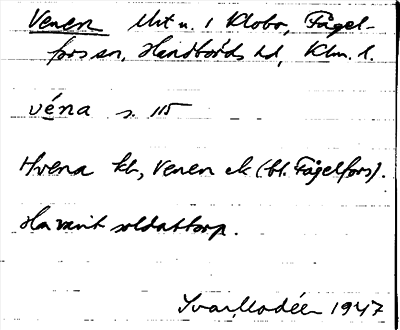 Venen Utt u. 1 Klobo, Fågel-
fors sn, Handbörds hd, Klm. l.
véna s. 115
Hvena kb, Venen ek (bl. Fågelfors).
Har varit soldattorp.
Ivar Modéer 1947